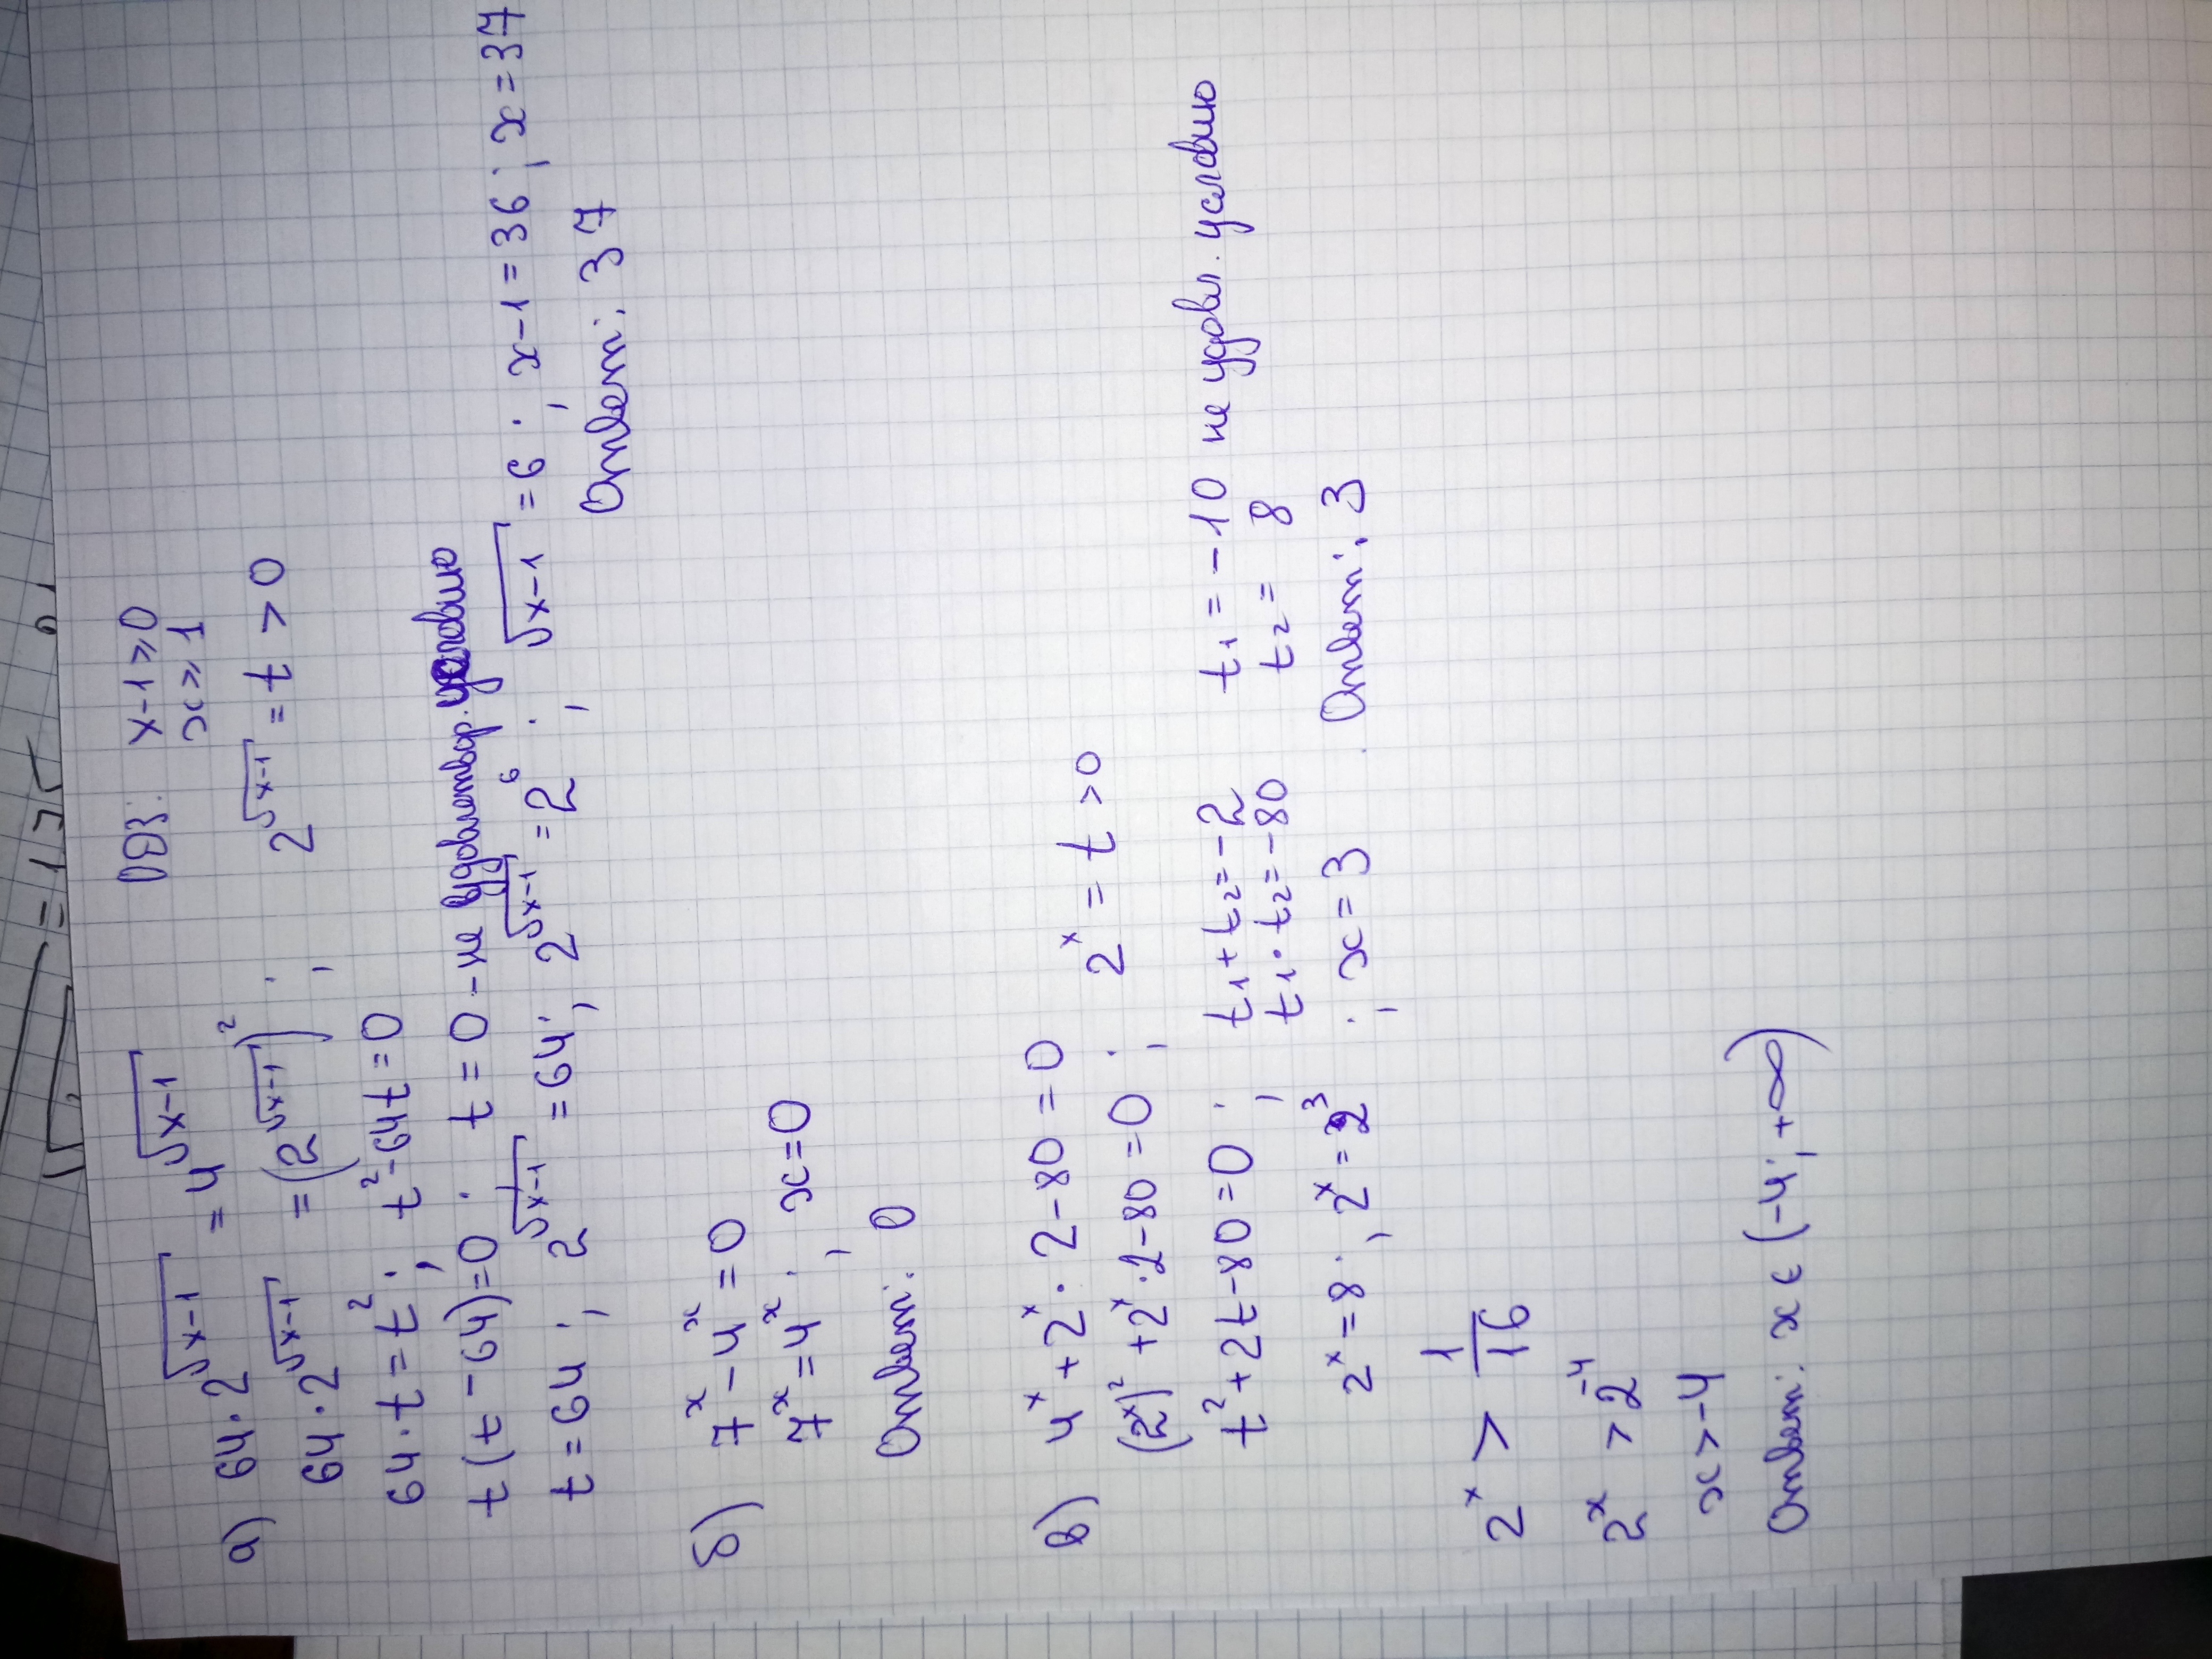 а) 64·2^√(x-1) = 4^√(x-1) ОДЗ: x-1≥0
x≥1
64·2^√(x-1) = (2^√(x-1))²; 2^√(x-1) = t > 0
64·t = t²; t²-64t=0
t(t-64)=0; t=0 - не удовлетвор. условию
t=64; 2^√(x-1) = 64; 2^√(x-1) = 2⁶; √(x-1) = 6; x-1=36; x=37
Ответ: 37
б) 7^x - 4^x = 0
7^x = 4^x; x=0
Ответ: 0
в) 4^x + 2^x · 2 - 80 = 0
(2^x)² + 2^x · 2 - 80 = 0; 2^x = t > 0
t² + 2t - 80 = 0; t₁ + t₂ = -2 t₁ = -10 не удовл. условию
t₁ · t₂ = -80 t₂ = 8
2^x = 8; 2^x = 2³; x = 3. Ответ: 3
2^x > 1/16
2^x > 2^-4
x > -4
Ответ: x ∈ (-4; +∞)